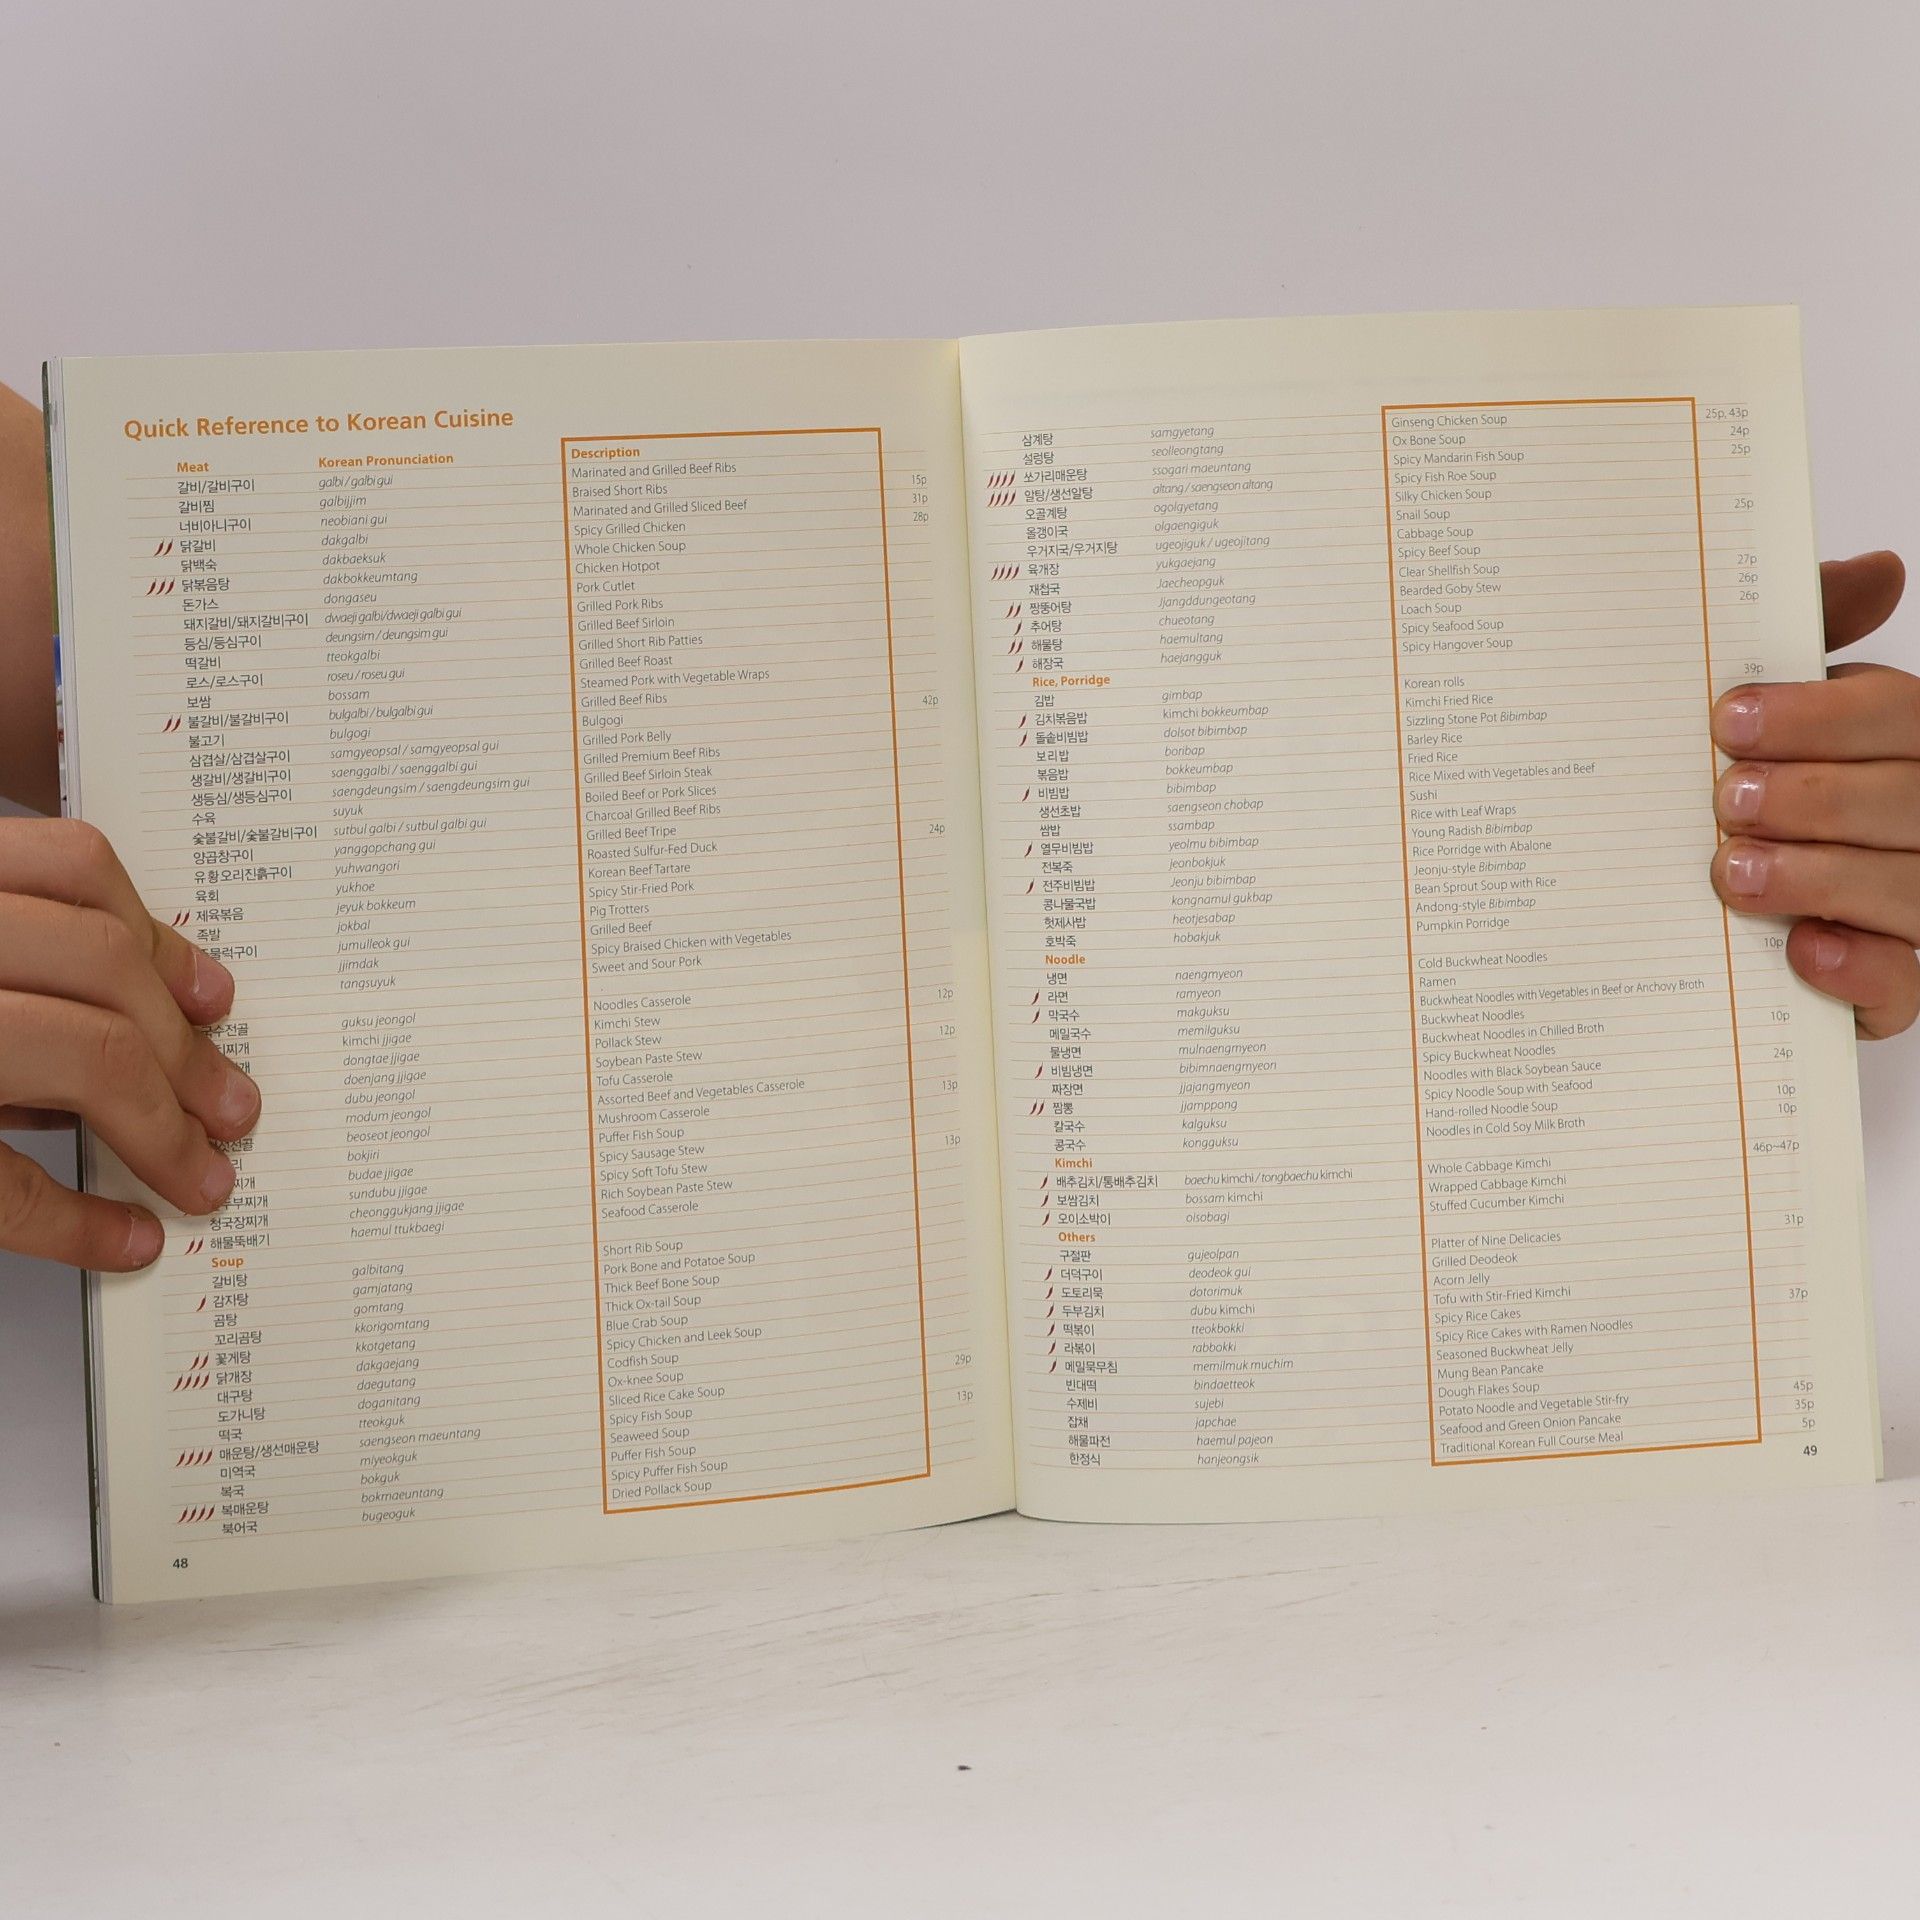 Quick Reference to Korean Cuisine
Meat Korean Pronunciation Description
갈비/갈비구이 galbi / galbi gui Marinated and Grilled Beef Ribs
갈비찜 galbijjim Braised Short Ribs 15p
너비아니구이 neobiani gui Marinated and Grilled Sliced Beef 31p
닭갈비 dakgalbi Spicy Grilled Chicken 28p
닭백숙 dakbaeksuk Whole Chicken Soup
닭볶음탕 dakbokkeumtang Chicken Hotpot
돈가스 dongaseu Pork Cutlet
돼지갈비/돼지갈비구이 dwaeji galbi/dwaeji galbi gui Grilled Pork Ribs
등심/등심구이 deungsim / deungsim gui Grilled Beef Sirloin
떡갈비 tteokgalbi Grilled Short Rib Patties
로스/로스구이 roseu / roseu gui Grilled Beef Roast
보쌈 bossam Steamed Pork with Vegetable Wraps
불갈비/불갈비구이 bulgalbi / bulgalbi gui Grilled Beef Ribs
불고기 bulgogi Bulgogi 42p
삼겹살/삼겹살구이 samgyeopsal / samgyeopsal gui Grilled Pork Belly
생갈비/생갈비구이 saenggalbi / saenggalbi gui Grilled Premium Beef Ribs
생등심/생등심구이 saengdeungsim / saengdeungsim gui Grilled Beef Sirloin Steak
수육 suyuk Boiled Beef or Pork Slices
숯불갈비/숯불갈비구이 sutbul galbi / sutbul galbi gui Charcoal Grilled Beef Ribs
양곱창구이 yanggopchang gui Grilled Beef Tripe
유황오리진흙구이 yuhwangori Roasted Sulfur-Fed Duck 24p
육회 yukhoe Korean Beef Tartare
제육볶음 jeyuk bokkeum Spicy Stir-Fried Pork
족발 jokbal Pig Trotters
물럭구이 jumulleok gui Grilled Beef
jjimdak Spicy Braised Chicken with Vegetables
tangsuyuk Sweet and Sour Pork
국수전골 guksu jeongol Noodles Casserole
찌개 kimchi jjigae Kimchi Stew 12p
dongtae jjigae Pollack Stew
doenjang jjigae Soybean Paste Stew 12p
dubu jeongol Tofu Casserole
modum jeongol Assorted Beef and Vegetables Casserole
전골 beoseot jeongol Mushroom Casserole 13p
리 bokjiri Puffer Fish Soup
찌개 budae jjigae Spicy Sausage Stew
두부찌개 sundubu jjigae Spicy Soft Tofu Stew 13p
청국장찌개 cheonggukjang jjigae Rich Soybean Paste Stew
해물뚝배기 haemul ttukbaegi Seafood Casserole
Soup
갈비탕 galbitang Short Rib Soup
감자탕 gamjatang Pork Bone and Potatoe Soup
곰탕 gomtang Thick Beef Bone Soup
꼬리곰탕 kkorigomtang Thick Ox-tail Soup
꽃게탕 kkotgetang Blue Crab Soup
닭개장 dakgaejang Spicy Chicken and Leek Soup
대구탕 daegutang Codfish Soup
도가니탕 doganitang Ox-knee Soup
떡국 tteokguk Sliced Rice Cake Soup 29p
매운탕/생선매운탕 saengseon maeuntang Spicy Fish Soup
미역국 miyeokguk Seaweed Soup 13p
복국 bokguk Puffer Fish Soup
복매운탕 bokmaeuntang Spicy Puffer Fish Soup
북어국 bugeoguk Dried Pollack Soup
48
삼계탕 samgyetang Ginseng Chicken Soup 25p, 43p
설렁탕 seolleongtang Ox Bone Soup 24p
쏘가리매운탕 ssogari maeuntang Spicy Mandarin Fish Soup 25p
알탕/생선알탕 altang / saengseon altang Spicy Fish Roe Soup
오골계탕 ogolgyetang Silky Chicken Soup
올갱이국 olgaengiguk Snail Soup 25p
우거지국/우거지탕 ugeojiguk / ugeojitang Cabbage Soup
육개장 yukgaejang Spicy Beef Soup
재첩국 Jaecheopguk Clear Shellfish Soup 27p
짱뚱어탕 Jjangddungeotang Bearded Goby Stew 26p
추어탕 chueotang Loach Soup 26p
해물탕 haemultang Spicy Seafood Soup
해장국 haejangguk Spicy Hangover Soup
Rice, Porridge
김밥 gimbap Korean rolls 39p
김치볶음밥 kimchi bokkeumbap Kimchi Fried Rice
돌솥비빔밥 dolsot bibimbap Sizzling Stone Pot Bibimbap
보리밥 boribap Barley Rice
볶음밥 bokkeumbap Fried Rice
비빔밥 bibimbap Rice Mixed with Vegetables and Beef
생선초밥 saengseon chobap Sushi
쌈밥 ssambap Rice with Leaf Wraps
열무비빔밥 yeolmu bibimbap Young Radish Bibimbap
전복죽 jeonbokjuk Rice Porridge with Abalone
전주비빔밥 Jeonju bibimbap Jeonju-style Bibimbap
콩나물국밥 kongnamul gukbap Bean Sprout Soup with Rice
헛제사밥 heotjesabap Andong-style Bibimbap
호박죽 hobakjuk Pumpkin Porridge
Noodle
냉면 naengmyeon Cold Buckwheat Noodles 10p
라면 ramyeon Ramen
막국수 makguksu Buckwheat Noodles with Vegetables in Beef or Anchovy Broth
메밀국수 memilguksu Buckwheat Noodles
물냉면 mulnaengmyeon Buckwheat Noodles in Chilled Broth 10p
비빔냉면 bibimnaengmyeon Spicy Buckwheat Noodles
짜장면 jjajangmyeon Noodles with Black Soybean Sauce 24p
짬뽕 jjamppong Spicy Noodle Soup with Seafood
칼국수 kalguksu Hand-rolled Noodle Soup 10p
콩국수 kongguksu Noodles in Cold Soy Milk Broth 10p
Kimchi
배추김치/통배추김치 baechu kimchi / tongbaechu kimchi Whole Cabbage Kimchi 46p~47p
보쌈김치 bossam kimchi Wrapped Cabbage Kimchi
오이소박이 oisobagi Stuffed Cucumber Kimchi
Others
구절판 gujeolpan Platter of Nine Delicacies 31p
더덕구이 deodeok gui Grilled Deodeok
도토리묵 dotorimuk Acorn Jelly
두부김치 dubu kimchi Tofu with Stir-Fried Kimchi
떡볶이 tteokbokki Spicy Rice Cakes 37p
라볶이 rabbokki Spicy Rice Cakes with Ramen Noodles
메밀묵무침 memilmuk muchim Seasoned Buckwheat Jelly
빈대떡 bindaetteok Mung Bean Pancake
수제비 sujebi Dough Flakes Soup
잡채 japchae Potato Noodle and Vegetable Stir-fry 45p
해물파전 haemul pajeon Seafood and Green Onion Pancake 35p
한정식 hanjeongsik Traditional Korean Full Course Meal 5p
49